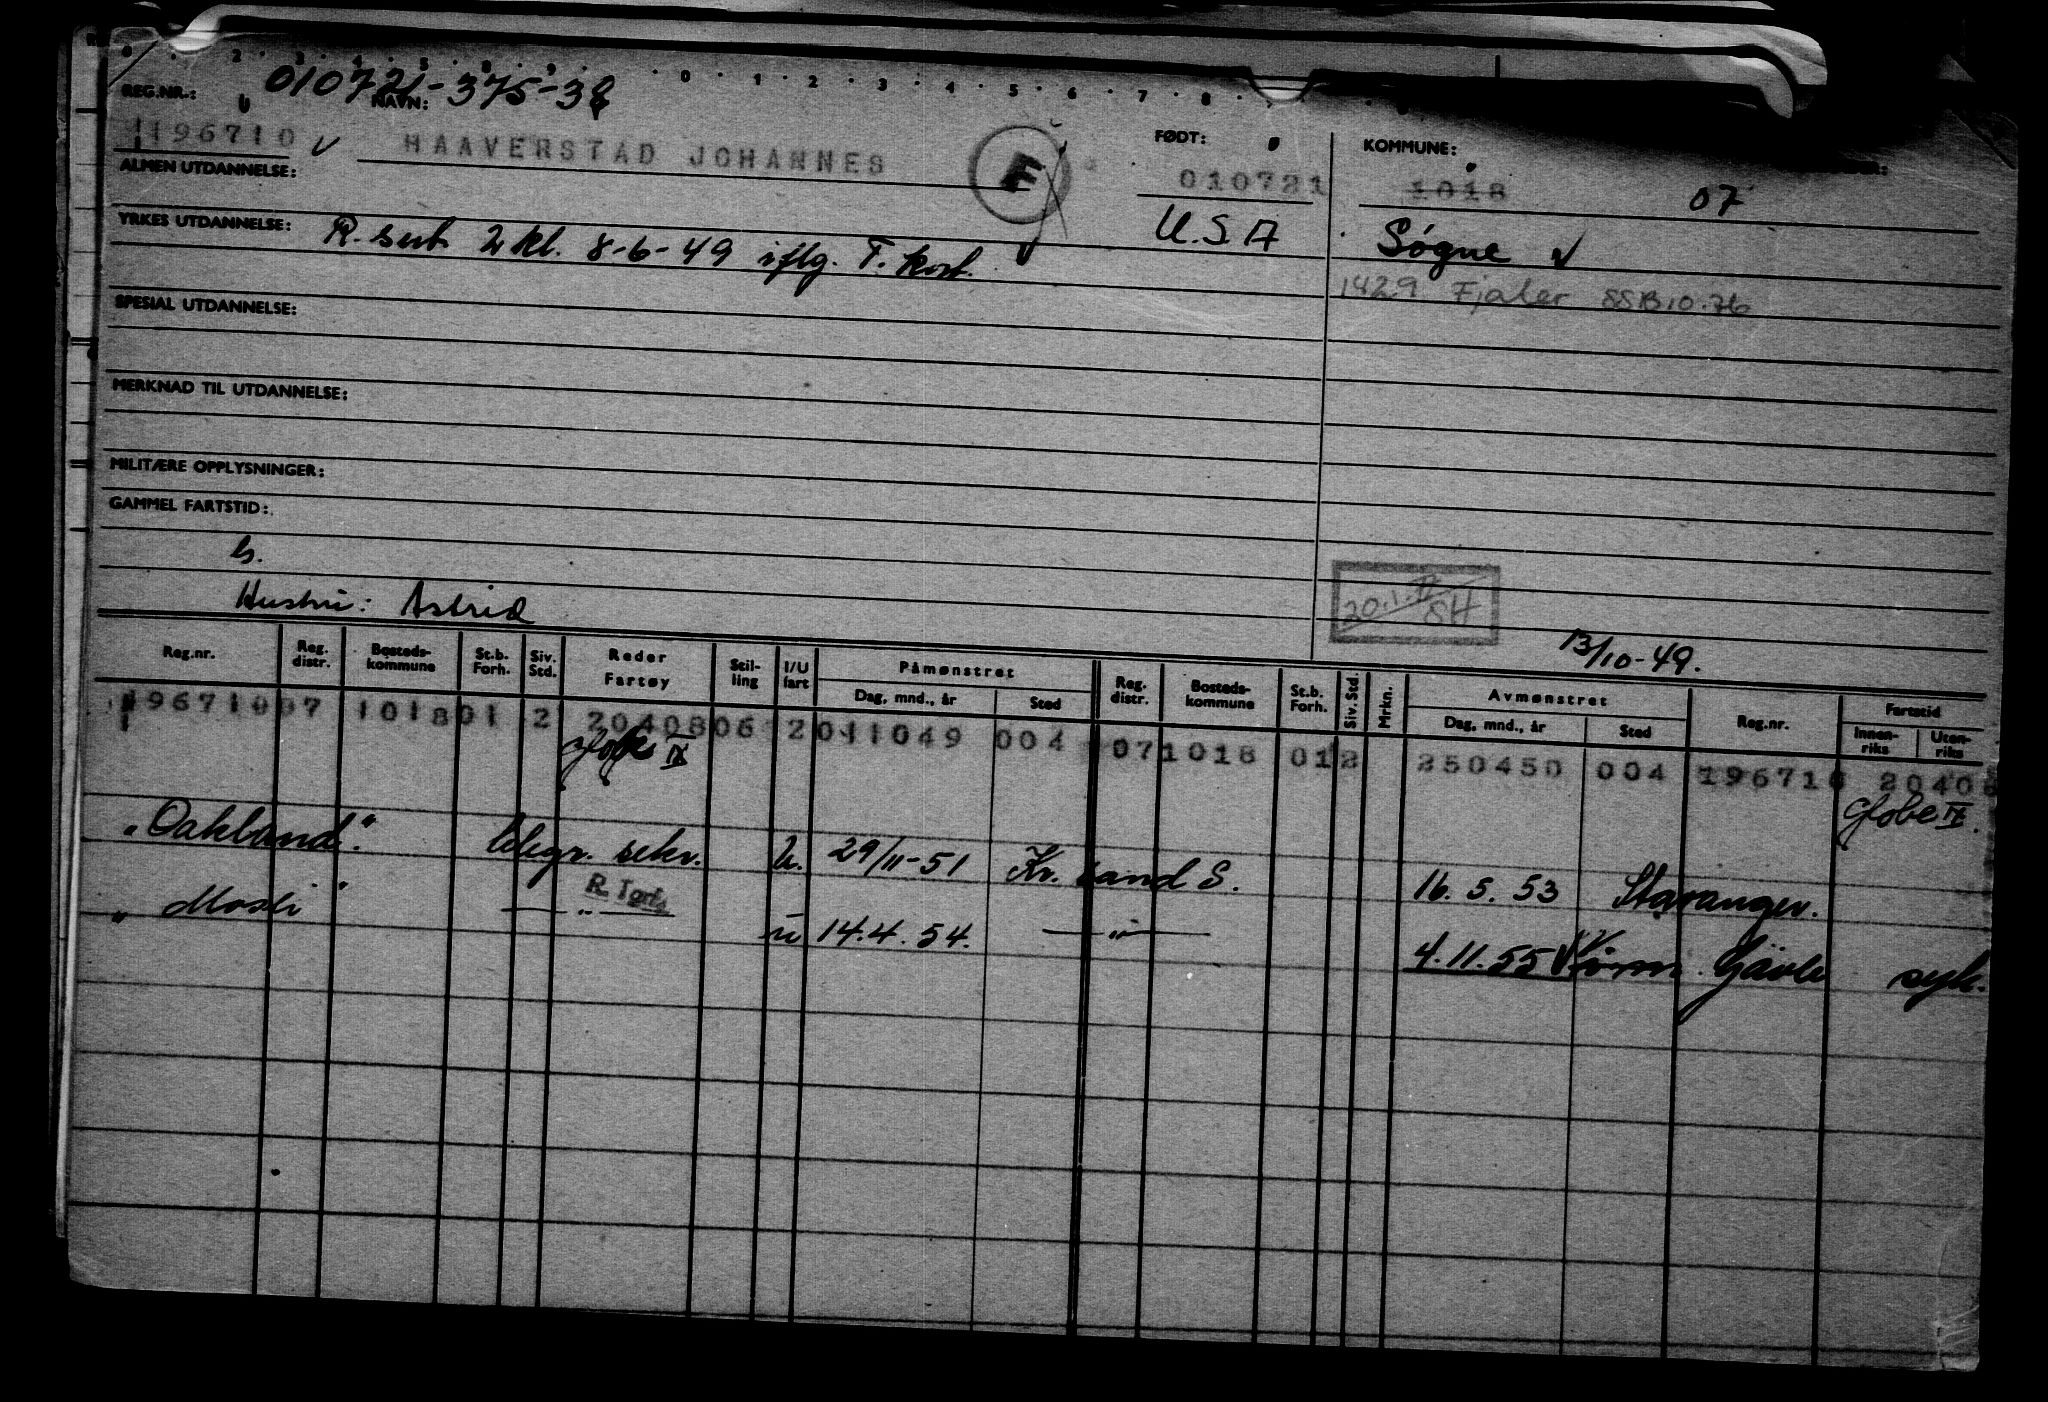 0 . 2 . 3 . 4 . 5 . 8 . 9 . . 0 . 1 . 2 . 3 . 4 . 5 . 6 . 7 . 8 .
REG.NR.: 010721-375-38
NAVN: FØDT: KOMMUNE:
196710 HAAVERSTAD JOHANNES F 010721 1018 07
ALMEN UTDANNELSE:
U.S.A Søgne
YRKES UTDANNELSE: R. sert. 2 kl. 8-6-49 iflg. F. kort.
1429 Fjaler SSB 10.76
SPESIAL UTDANNELSE:
MERKNAD TIL UTDANNELSE:
MILITÆRE OPPLYSNINGER:
GAMMEL FARTSTID:
G.
20.1. SH
Hustru: Astrid
13/10-49.
Reg.nr. Reg. distr. Bosteds-kommune St.b. Forh. Siv. Std. Reder Fartøy Stil-ling I/U fart Påmønstret Dag, mnd., år Sted Reg. distr. Bosteds-kommune St.b. Forh. Siv. Std. Mrkn. Avmønstret Dag, mnd., år Sted Reg.nr. Fartstid Innen-riks Uten-riks
196710 07 1018 01 2 20408 06 2 011049 004 07 1018 01 2 250450 004 196710 20408
IX Globe IX.
"Oakland." telegr. sekr. u. 29/11-51 Kr.sand S. 16.5.53 Stavanger.
R. Tgrf.
"Mosli" — " — u 14.4.54. — " — 4.11.55 Gävle syk.